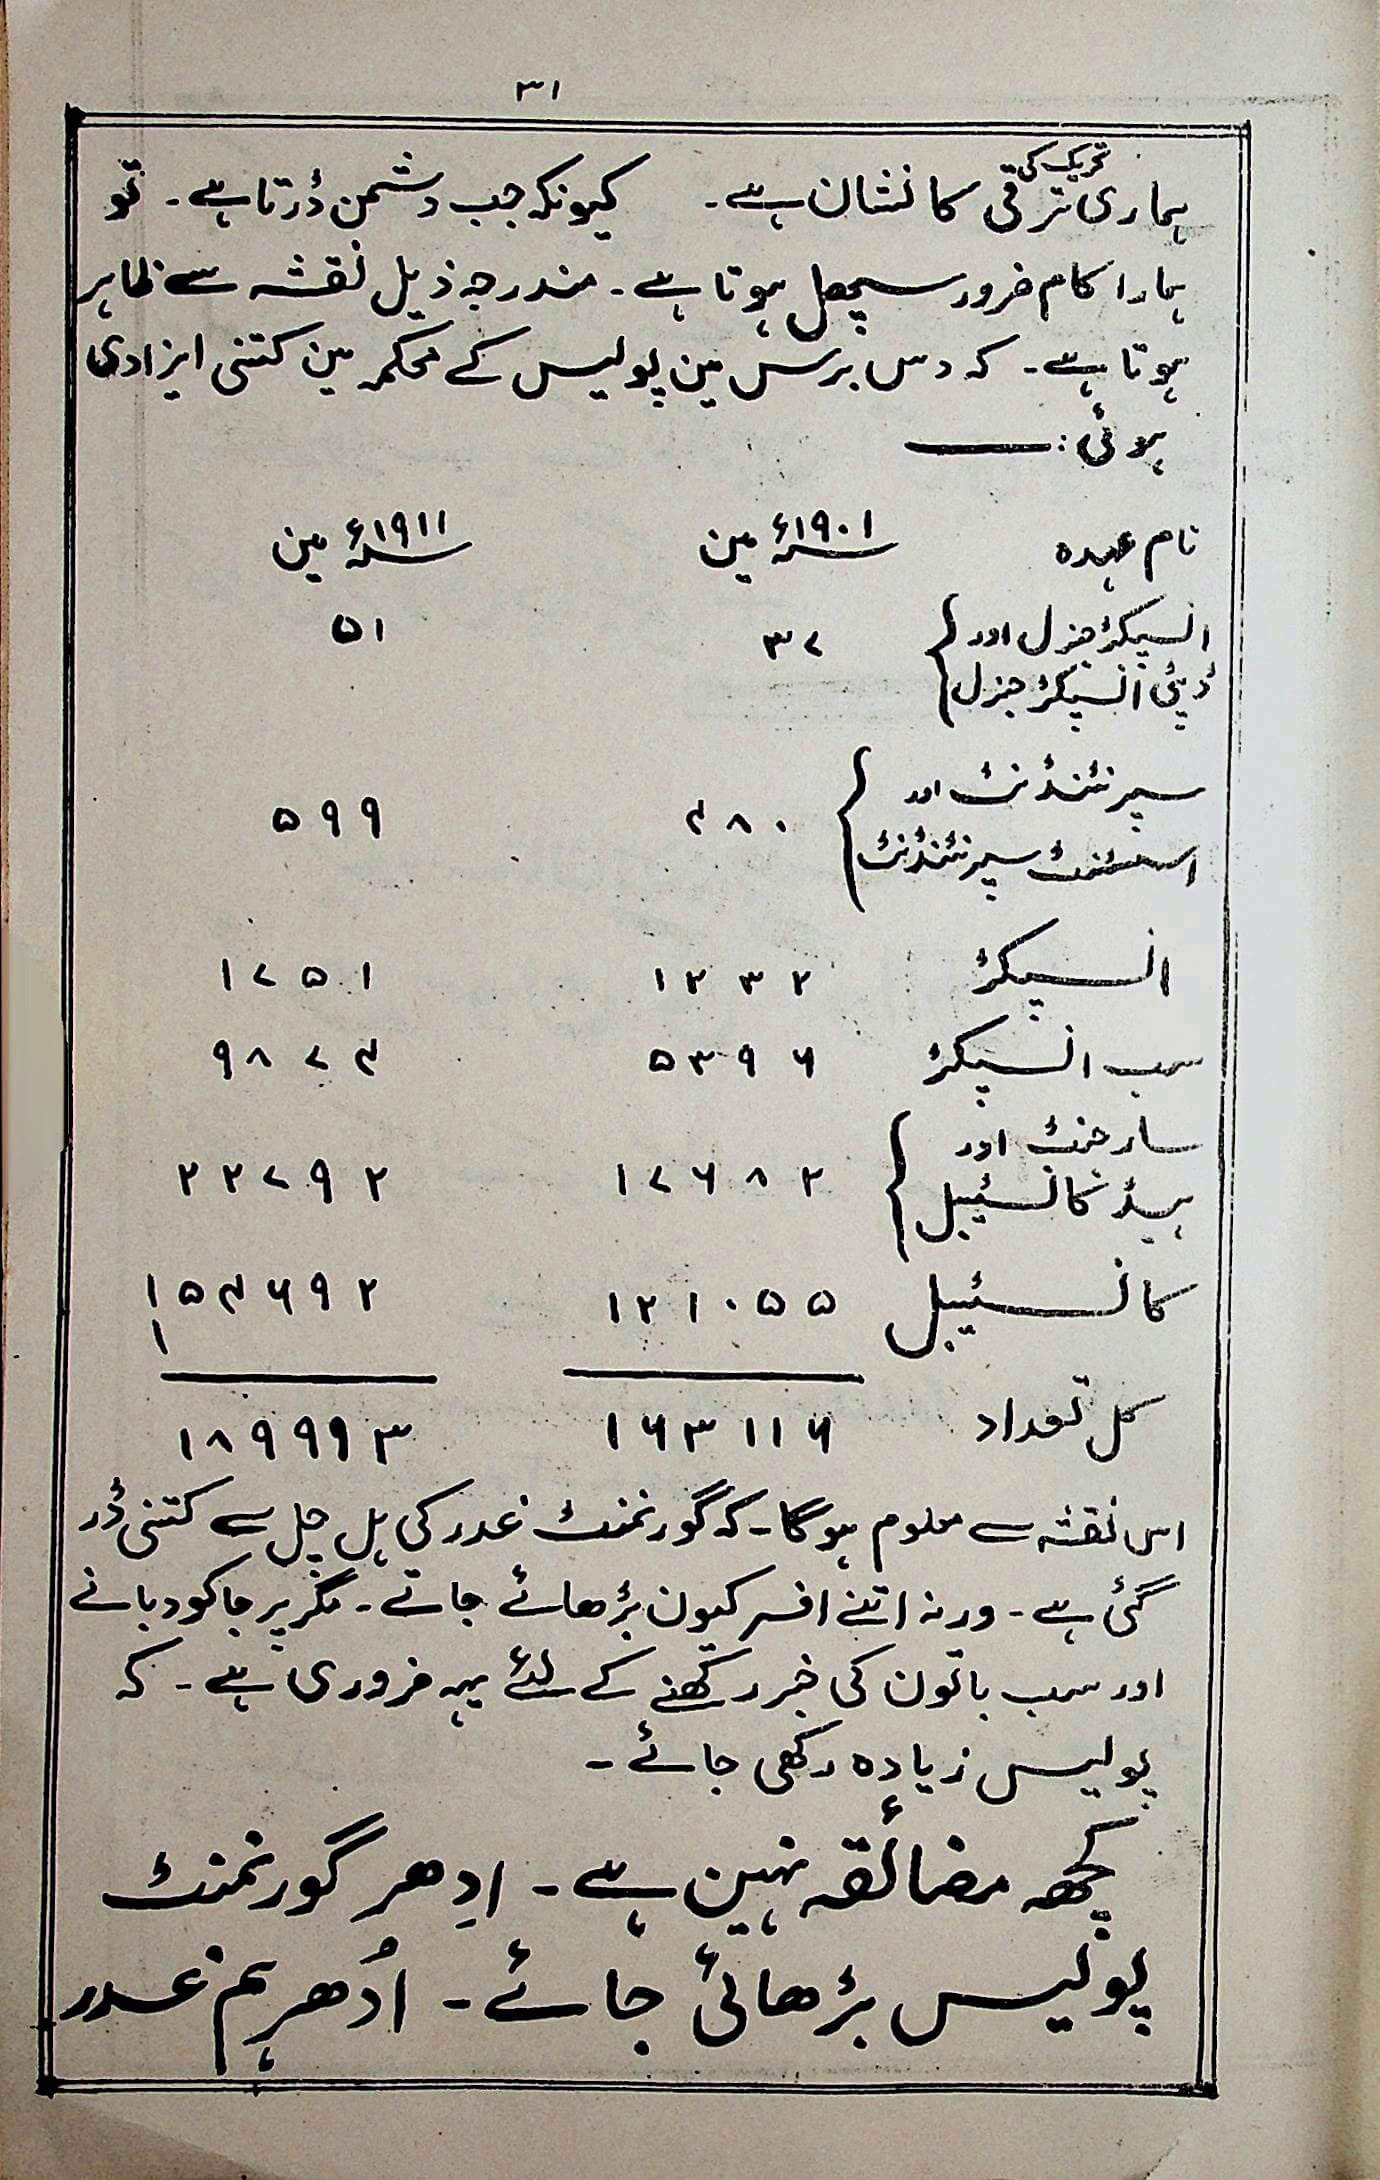 ۳۱
ہماری تحریک کی ترقی کا نشان ہے۔ کیونکہ جب دشمن ڈرتا ہے۔ تو
ہمارا کام ضرور سپھل ہوتا ہے۔ مندرجہ ذیل نقشہ سے ظاہر
ہوتا ہے۔ کہ دس برس مین پولیس کے محکمہ مین کتنی ایزادی
ہوئی:ـــــ
نام عہدہ ۱۹۰۱ء سنہ مین ۱۹۱۱ء سنہ مین
انسپکڑ جنرل اور
ڈپٹی انسپکٹر جنرل } ۳۷ ۵۱
سپرنٹنڈنٹ اور
اسسٹنٹ سپرنٹنڈنٹ } ۴۸۰ ۵۹۹
انسپکٹر ۱۲۳۲ ۱۷۵۱
سب انسپکٹر ۵۳۹۶ ۹۸۷۴
سارجنٹ اور
ہیڈ کانسٹیبل } ۱۷۶۸۲ ۲۲۷۹۲
کانسٹیبل ۱۲۱۰۵۵ ۱۵۴۶۹۲
۱
کل تعداد ۱۶۳۱۱۶ ۱۸۹۹۹۳
اس نقشہ سے معلوم ہوگا۔ کہ گورنمنٹ غدر کی ہل چل سے کتنی ڈر
گئی ہے۔ ورنہ اتنے افسر کیون بڑھائے جاتے۔ مگر پرجا کو دبانے
اور سب باتون کی خبر رکھنے کے لئے یہہ ضروری ہے۔ کہ
پولیس زیادہ رکھی جائے۔
کچھ مضائقہ نہین ہے۔ اِدھر گورنمنٹ
پولیس بڑھائی جائے۔ اُدھر ہم غدر